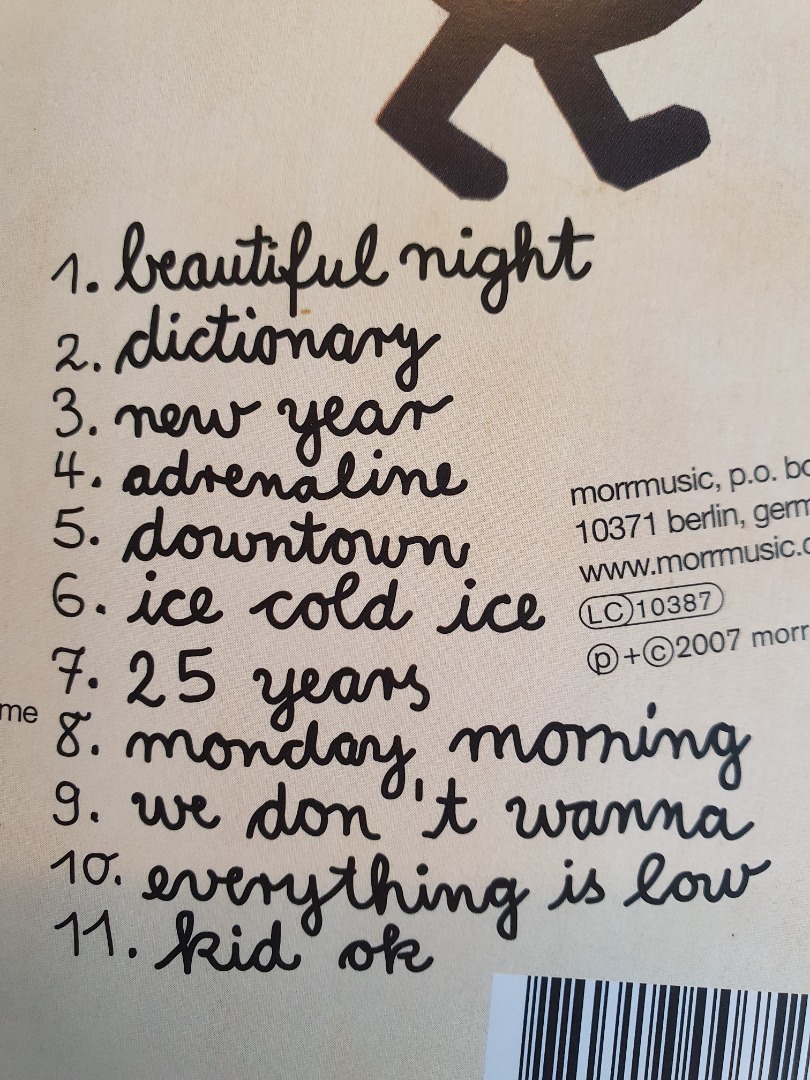 1. beautiful night
2. dictionary
3. new year
4. adrenaline
5. downtown
6. ice cold ice
7. 25 years
8. monday morning
9. we don't wanna
10. everything is low
11. kid ok
morrmusic, p.o.
10371 berlin,
www.morrmusic.
LC 10387
℗+©2007 morr
me